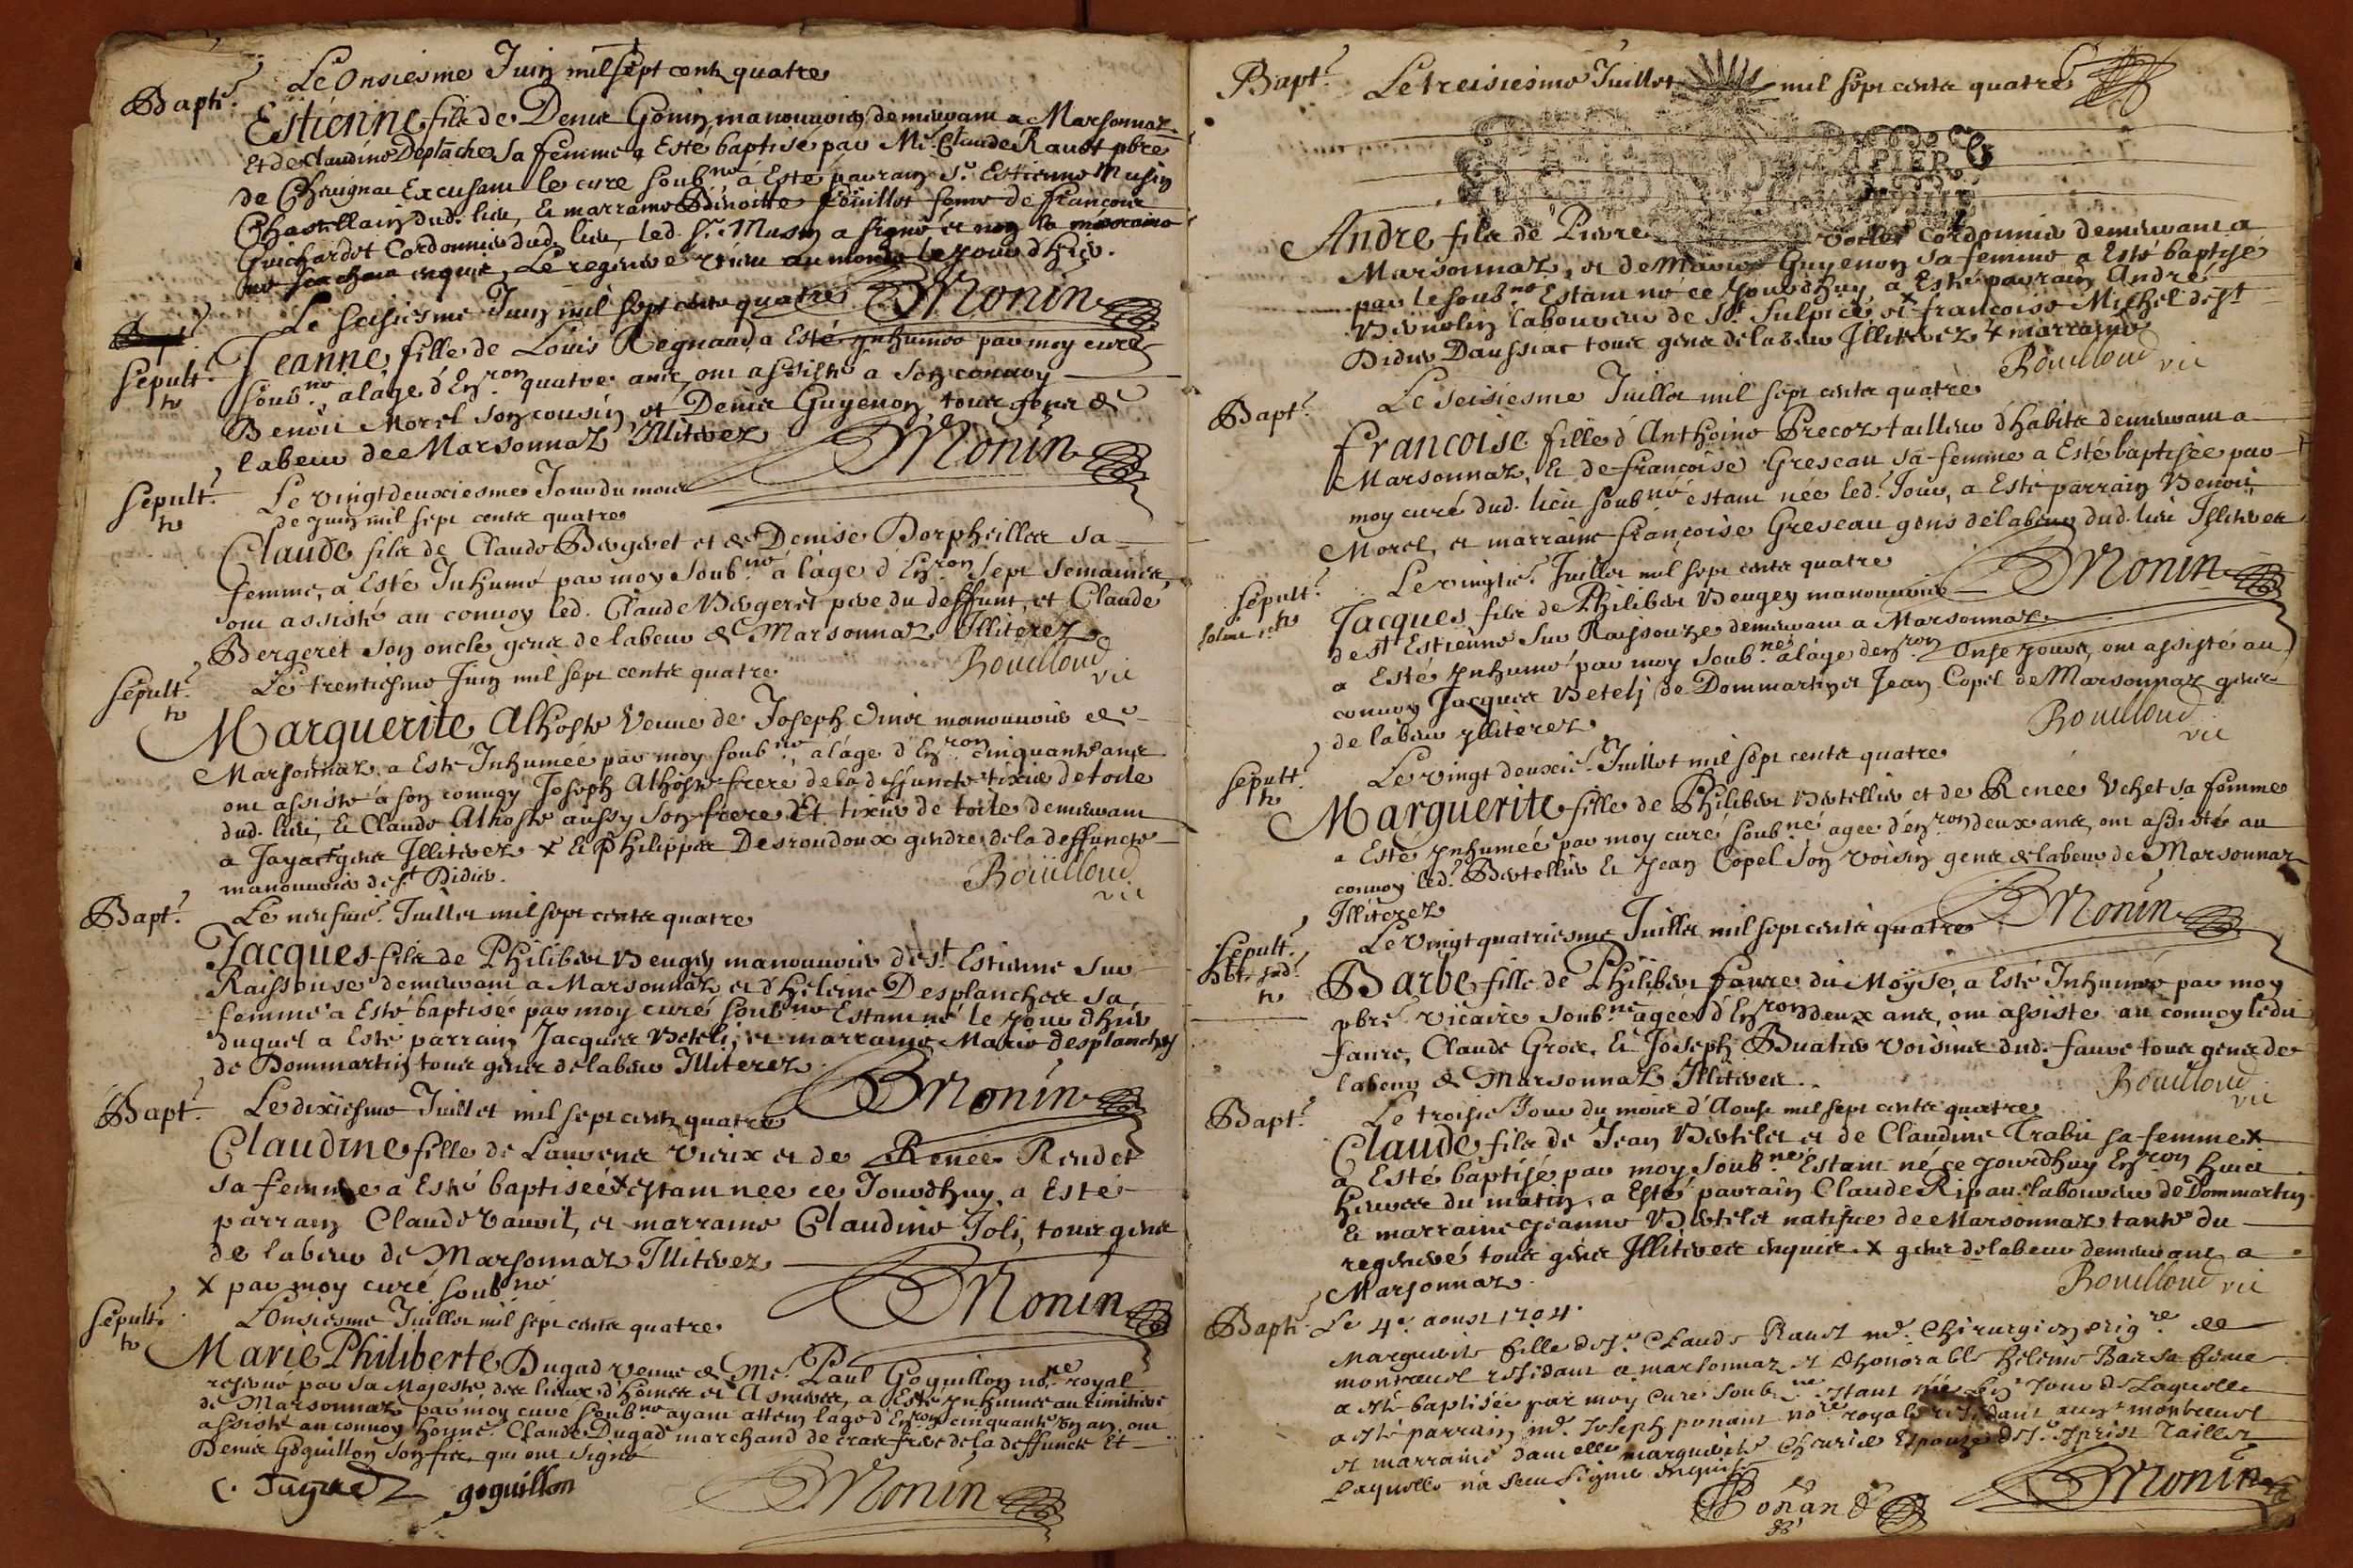 Bapt.e
Le Onsiesme Juin mil sept cents quatre
Estienne fils de Denis Gonin manouvrier demeurant a Marsonnaz
Et de Claudine Desplanches sa femme a Esté baptisé par Me. Claude Ravot pbre
de Chevignat Excusant le curé soub.né a Esté parrain Sr. Estienne Musin
Chastellain dud. lieu, et marraine Benoitte Foüillot femme de françois
Guichardet Cordonnier dud. lieu, led. Sr. Musin a signé et non la marraine
ne scachant enquis, Le regeneré venu au monde le jour d'hier.
BMonin
Le seisiesme Juin mil sept cents quatre
Sepult.re
Jeanne fille de Louis Regnaud a Esté inhumée par moy curé
soub.né, a lage d'En.ron quatre ans, ont assisté a son convoy
Benoit Morel son cousin et Denis Guyenon, tous gens de
labeur de Marsonnaz Illiterez
BMonin
Sepult.re
Le vingt deuxiesme Jour du mois
de juin mil sept cents quatre
Claude fils de Claude Bergeret et de Denise Dorpheilles sa
femme, a Esté Inhumé par moy soub.né a lage d'En.ron sept semaines,
ont assisté au convoy led. Claude Bergeret pere du deffunt, et Claude
Bergeret son oncle gens de labeur de Marsonnaz Illiterez
Bouilloud vic
Sepult.re
Le trentiesme Juin mil sept cents quatre
Marguerite Alhoste veuve de Joseph manouvrier de
Marsonnaz, a Esté Inhumée par moy soub.né, a lage d'En.ron cinquante ans
ont assisté a son convoy Joseph Alhoste frere de la deffuncte tixier de toile
dud. lieu, Et Claude Alhoste aussy son frere Et tixier de toile demeurant
a Jayat gens Illiterez x Et Philippe Desroudoux gendre de la deffuncte
manouvrier de St. Didier.
Bouilloud
vic
Bapt.e
Le neufvie. Juillet mil sept cents quatre
Jacques fils de Philibert Beugey manouvrier de St. Estienne sur
Raissouse demeurant a Marsonnaz et d'Heleine Desplanches sa
femme a Esté baptisé par moy curé soub.né Estant né le jour d'hier
duquel a Esté parrain Jacques Beteli, et marraine Marie desplanches
de Dommartin tous gens de labeur Illiterez
BMonin
Bapt.e
Le dixiesme Juillet mil sept cents quatre
Claudine fille de Laurent Vieix et de Renée Rendet
sa femme a Esté baptisée x estant née ce Jourdhuy, a Esté
parrain Claude Vauvit, et marraine Claudine Joli, tous gens
de labeur de Marsonnaz Illiterez
x par moy curé soub.né
BMonin
Sepult.re
L'Onsiesme Juillet mil sept cents quatre
Marie Philiberte Dugad veuve de Me. Paul Goguillon no.re royal
reservé par sa Majesté des lieux d'Homes et Asnieres, a Esté inhumée au cimitiere
de Marsonnaz par moy curé soub.né ayant atteint lage d'En.ron cinquante six an, ont
assisté au convoy hon.ne Claude Dugad marchand de cras frere de la deffuncte Et
Denis Goguillon son fils, qui ont signé
C. Dugad goguillon
BMonin
Bapt.e
Le treisiesme Juillet mil sept cents quatre
Andre fils de Pierre Voelet Cordonnier demeurant a
Marsonnaz, et de Marie Guyenon sa femme a Esté baptisé
par le soub.né Estant né ce jourdhuy, a Esté parrain André
Bernolin laboureur de St. Sulpice, et x françoise Michel de St.
Didier Daussiat tous gens de labeur Illiterez x marraine
Bouilloud vic
Bapt.e
Le seisiesme Juillet mil sept cents quatre
Francoise fille d'Anthoine Precoz tailleur d'habits demeurant a
Marsonnaz, Et de françoise Greseau sa femme a Esté baptisée par
moy curé dud. lieu soub.né estant née led. Jour, a Esté parrain Benoit
Morel, et marraine françoise Greseau gens de labeur dud. lieu Illiteres
BMonin
Sepult.re
Le vingtie. Juillet mil sept cents quatre
Jacques fils de Philibert Beugey manouvrier
de St. Estienne sur Raissouze demeurant a Marsonnaz
a Esté inhumé par moy soub.né a lage d'en.ron Onse jours, ont assisté au
convoy Jacques Betelj de Dommartin et Jean Copel de Marsonnaz gens
de labeur illiterez
Bouilloud
vic
Sepult.re
Le vingt deuxie. Juillet mil sept cents quatre
Marguerite fille de Philibert Bertellier et de Renée Vehet sa femme
a Esté inhumée par moy curé soub.né agee d'en.ron deux ans, ont assisté au
convoy led. Bertellier Et Jean Copel son voisin gens de labeur de Marsonnaz
Illiterez
BMonin
Sepult.re
Le vingt quatriesme Juillet mil sept cents quatre
Barbe fille de Philibert faure du Moyse, a Esté Inhumée par moy
pbre vicaire soub.né agée d'En.ron deux ans, ont assisté au convoy ledit
faure, Claude Gros, Et Joseph Buatier voisins dud. faure tous gens de
labeur de Marsonnaz Illiteres.
Bouilloud
vic
Bapt.e
Le troisie Jour du mois d'Aoust mil sept cents quatre
Claude fils de Jean Bertelet et de Claudine Trabu sa femme x
a Esté baptisé par moy soub.né Estant né ce jourdhuy En.ron huict
heures du matin, a Esté parrain Claude Ripau laboureur de Dommartin
Et marraine jeanne Bertelet natifve de Marsonnaz tante du
regeneré tous gens Illiteres enquis. x gens de labeur demeurant a
Marsonnaz.
Bouilloud vic
Bapt.
Le 4e. aoust 1704.
Marguerite fille de Sr. Claude Ravot me. Chirurgien
montrevel residant a marsonnaz et dhonorable heleine Bar sa feme
a esté baptisée par moy curé soub.né estant née Jour de Laquelle
a esté parrain me. Joseph ponant no.re royal residant montrevel
et marraine damelle marguerite Espouze de Sr. Taillet
Laquelle na sceu signer enquise
Ponand
BMonin